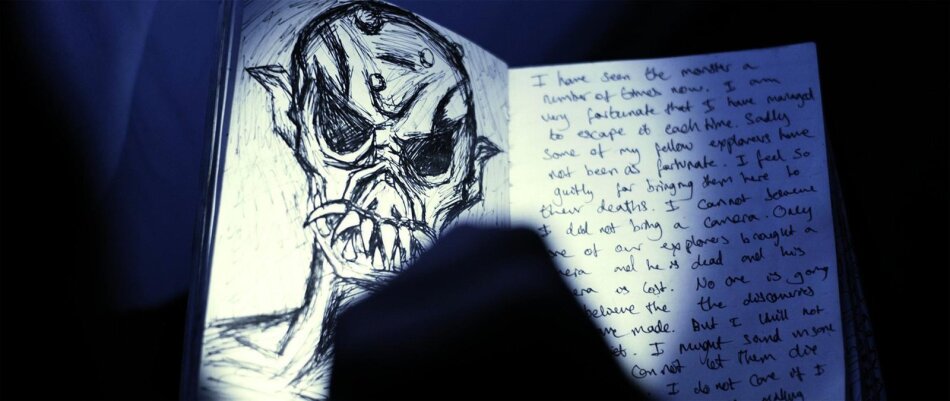 I have seen the monster a
number of times now. I am
very fortunate that I have managed
to escape it each time. Sadly
some of my fellow explorers have
not been as fortunate. I feel so
guilty for bringing them here to
their deaths. I cannot
I did not bring a camera. Only
one of our explorers brought a
and he is dead and his
is lost. No one is going
the the discoveries
made. But I will not
I might sound insane
cannot let them die
I do not care if I